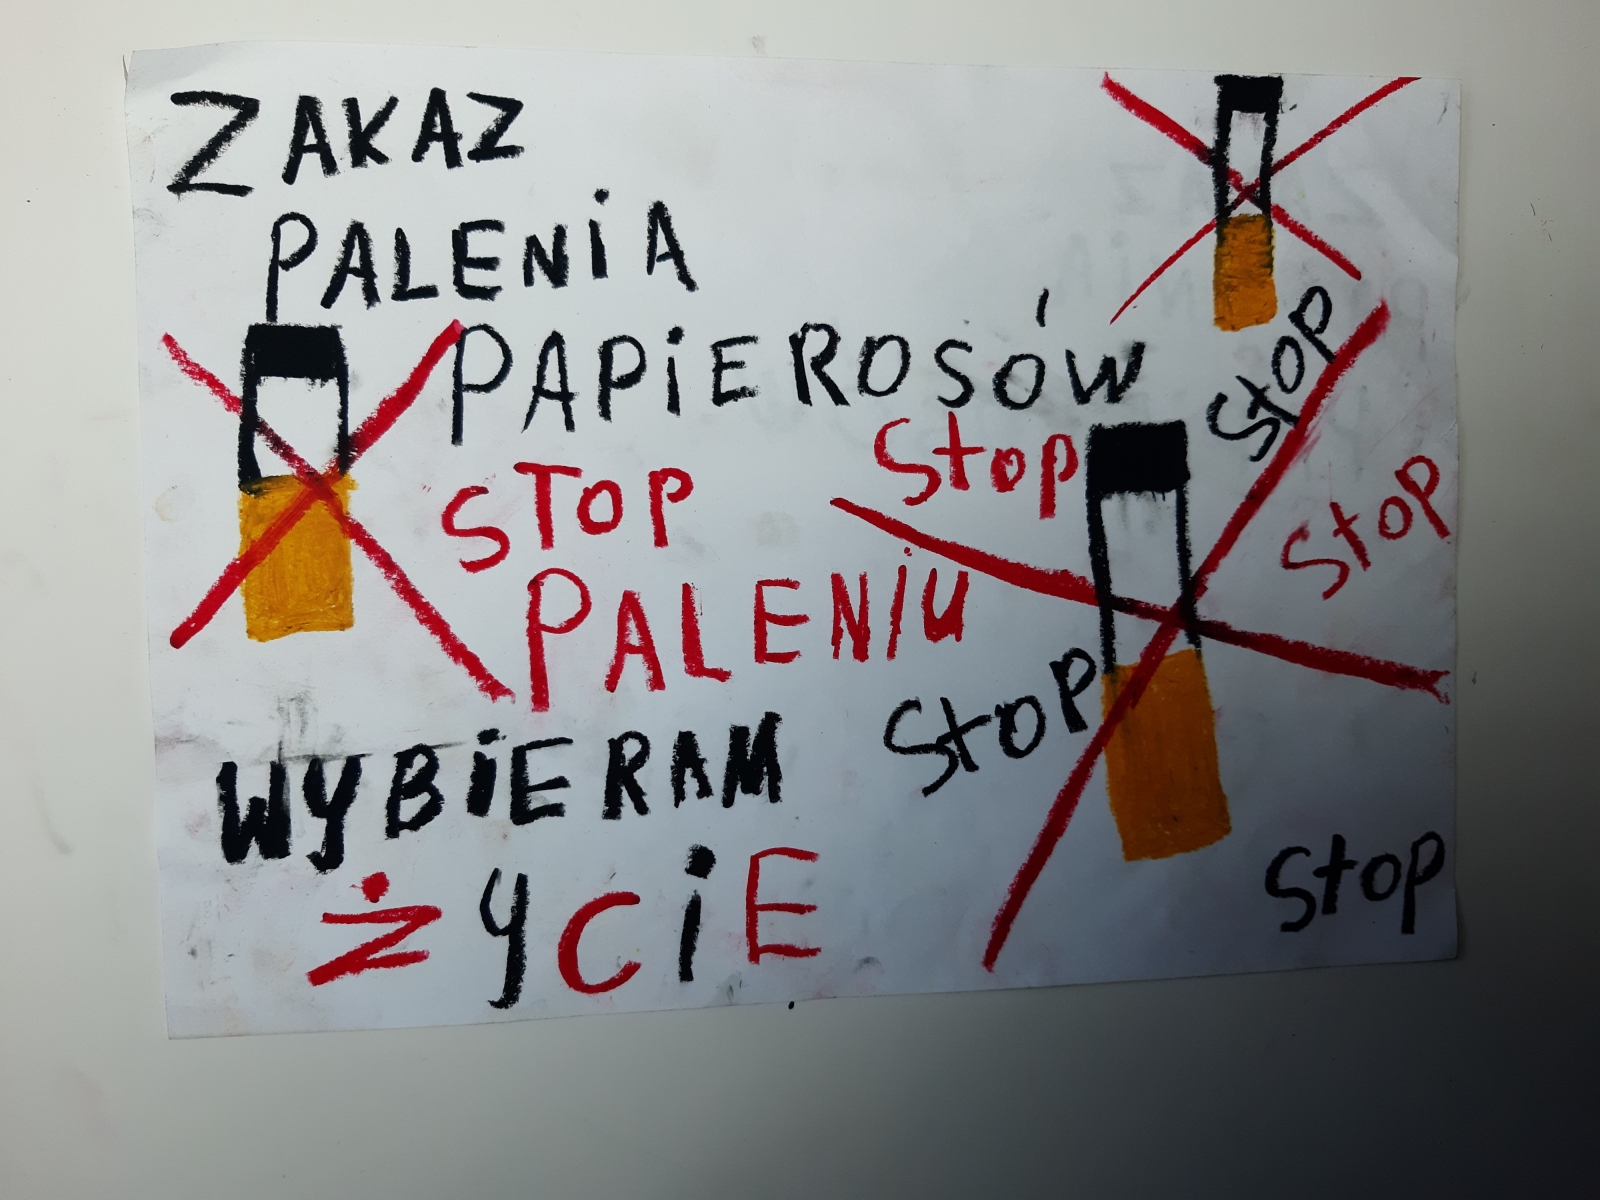 ZAKAZ
PALENiA
PAPiEROSÓW
STOP
PALENiU
WYBiERAM
ŻYCiE
Stop
Stop
Stop
Stop
Stop